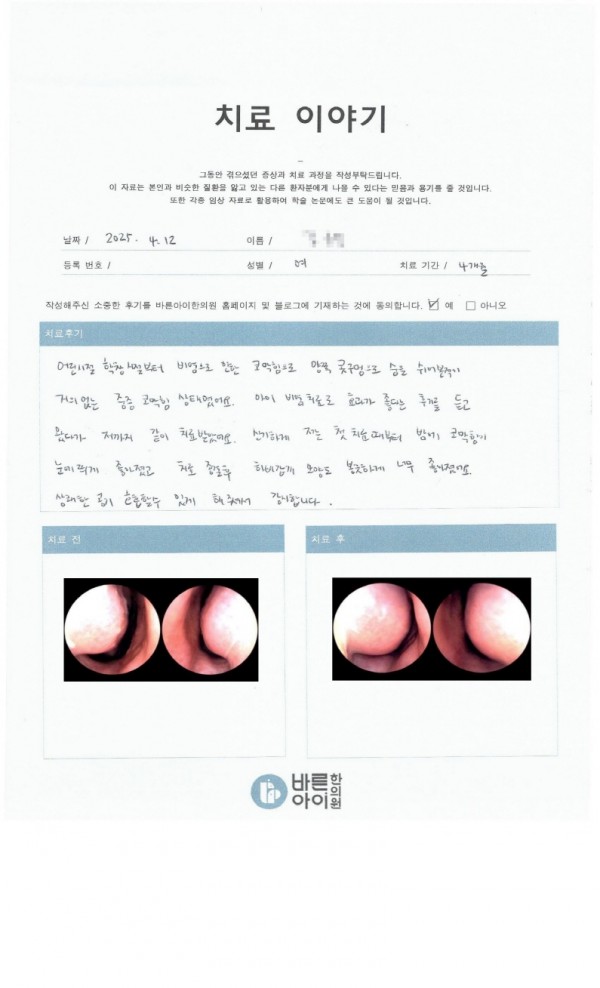 치료 이야기
그동안 겪으셨던 증상과 치료 과정을 작성부탁드립니다.
이 자료는 본인과 비슷한 질환을 앓고 있는 다른 환자분에게 나을 수 있다는 믿음과 용기를 줄 것입니다.
또한 각종 임상 자료로 활용하여 학술 논문에도 큰 도움이 될 것입니다.
날짜 / 2025. 4. 12 이름 /
등록 번호 / 성별 / 여 치료 기간 / 4개월
작성해주신 소중한 후기를 바른아이한의원 홈페이지 및 블로그에 기재하는 것에 동의합니다. ☑ 예 □ 아니오
치료후기
어린시절 학창시절부터 비염으로 인한 코막힘으로 양쪽 콧구멍으로 숨을 쉬어본적이
거의 없는 중증 코막힘 상태였어요. 아이 비염치료로 효과가 좋다는 후기를 듣고
왔다가 저까지 같이 치료받았어요. 신기하게 저는 첫 치료때부터 밤에 코막힘이
눈에 띄게 좋아졌고 치료 종결후 하비갑개 모양도 봉긋하게 너무 좋아졌어요.
상쾌한 공기 호흡할수 있게 해 주셔서 감사합니다.
치료 전
치료 후
바른아이한의원